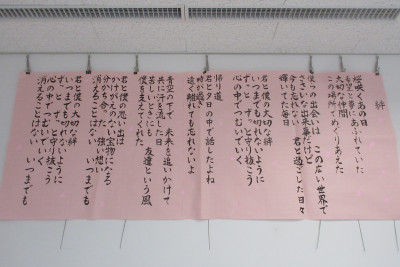 絆
桜咲くあの日
希望と夢にあふれていた
大切な仲間
この場所でめぐりあえた
僕らの出会いは この広い世界で
ささいな出来事だけど
今も忘れない 君と過ごした日々
輝いてた毎日
君と僕の大切な絆
いつまでも切れないように
ずっと ずっと守り抜こう
心の中でつむいでいく
帰り道
君と夕日の中で話したよね
時が過ぎ
遠く離れても忘れないよ
青空の下で 未来を追いかけて
共に汗を流した日
苦しいときにも 友達という風
僕を支えてくれた
君と僕の思い出は
かけがえのない宝物になる
分かち合った 強い想い
消えることはない いつまでも
君と僕の大切な絆
いつまでも切れないように
ずっと ずっと守り抜こう
心の中でつむいでいく
消えることはない いつまでも